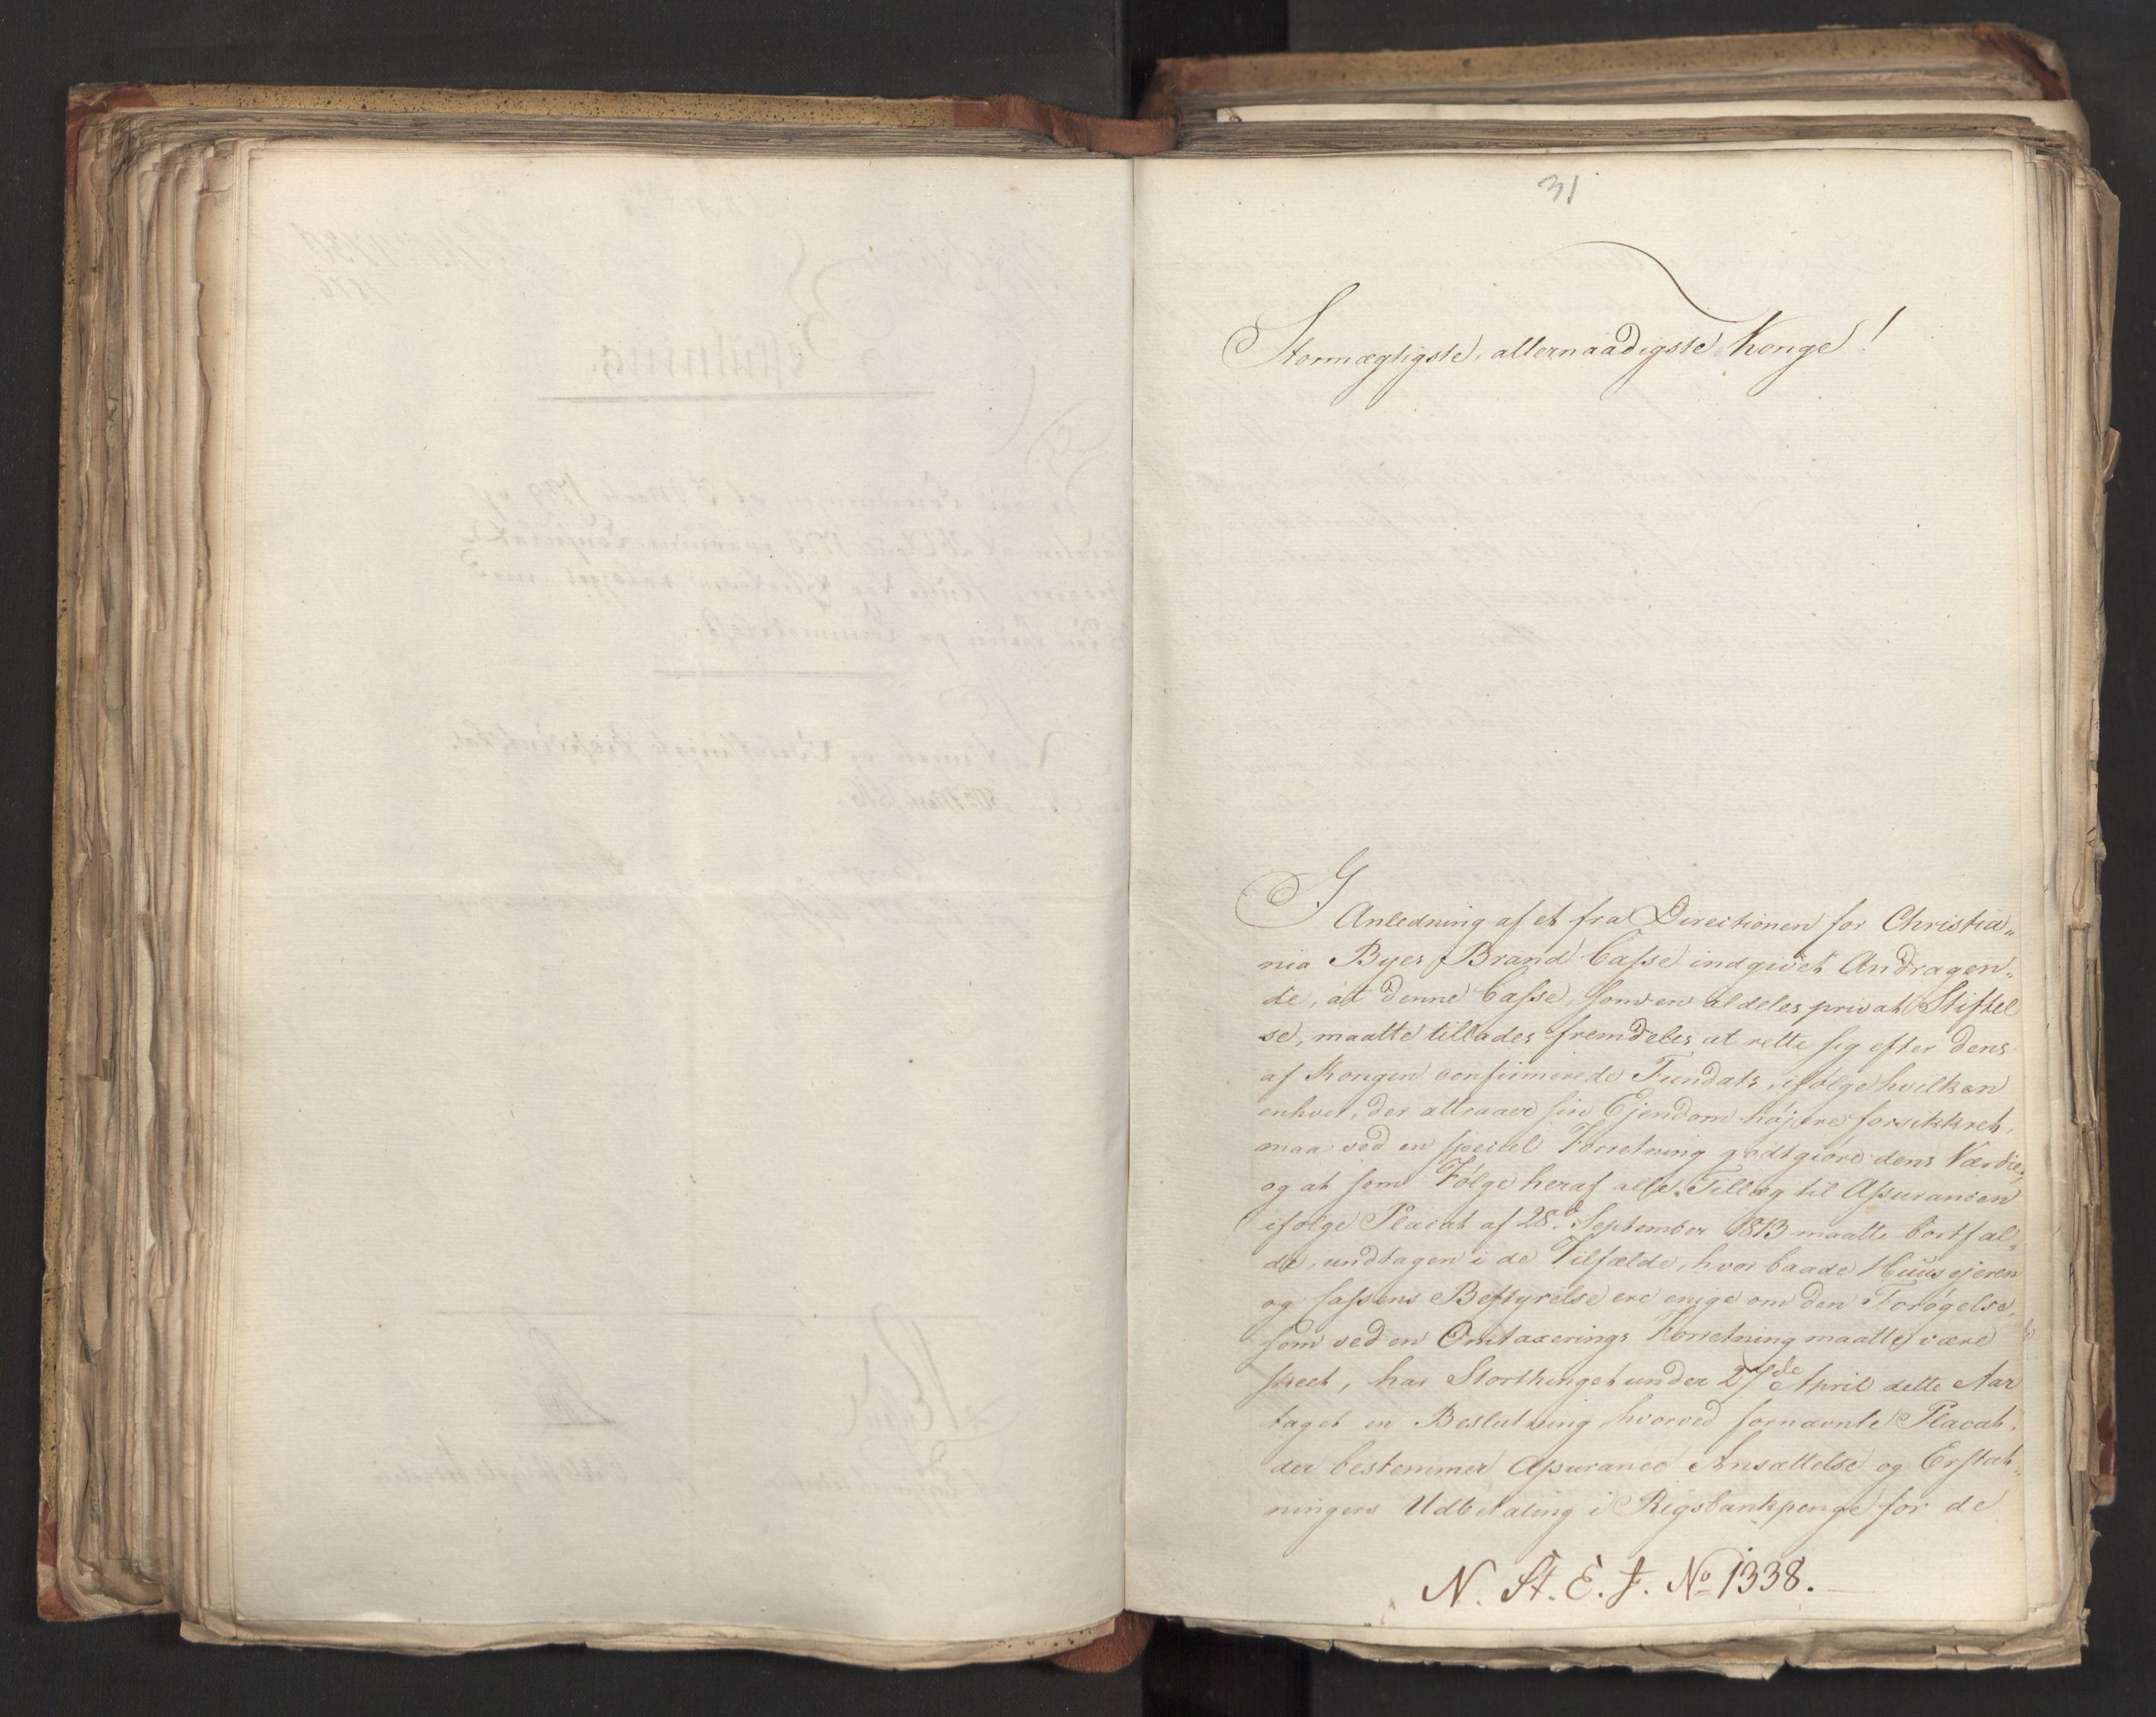 31
Stormægtigste, allernaadigste Konge!
I
Anledning af et fra Directionen for Christia„
nia Byes Brand Casse indgivet Andragen„
de, at denne Casse, som en aldeles privat Stiftel
se, maatte tillades fremdeles at rette sig efter dens
af Kongen confirmerede Fundats, ifølge hvilken
enhver, der attraaer sin Ejendom højere forsikkret,
maa ved en speciel Forretning godtgiøre dens Værdie,
og at som Følge heraf alle Tillæg til Assurancen
ifølge Placat af 28d September 1813 maatte bortfal„
de, undtagen i de Tilfælde, hvor baade Huusejeren
og Cassens Bestyrelse ere enige om den Forøgelse,
som ved en Omtaxerings Forretning maatte være
skeet, har Storthinget under 27de April dette Aar
taget en Beslutning hvorved fornævnte Placat,
der bestemmer Assurance Ansættelse og Erstat„
ningers Udbetaling i Rigsbankpenge for de
N. St. E. J. No 1338.